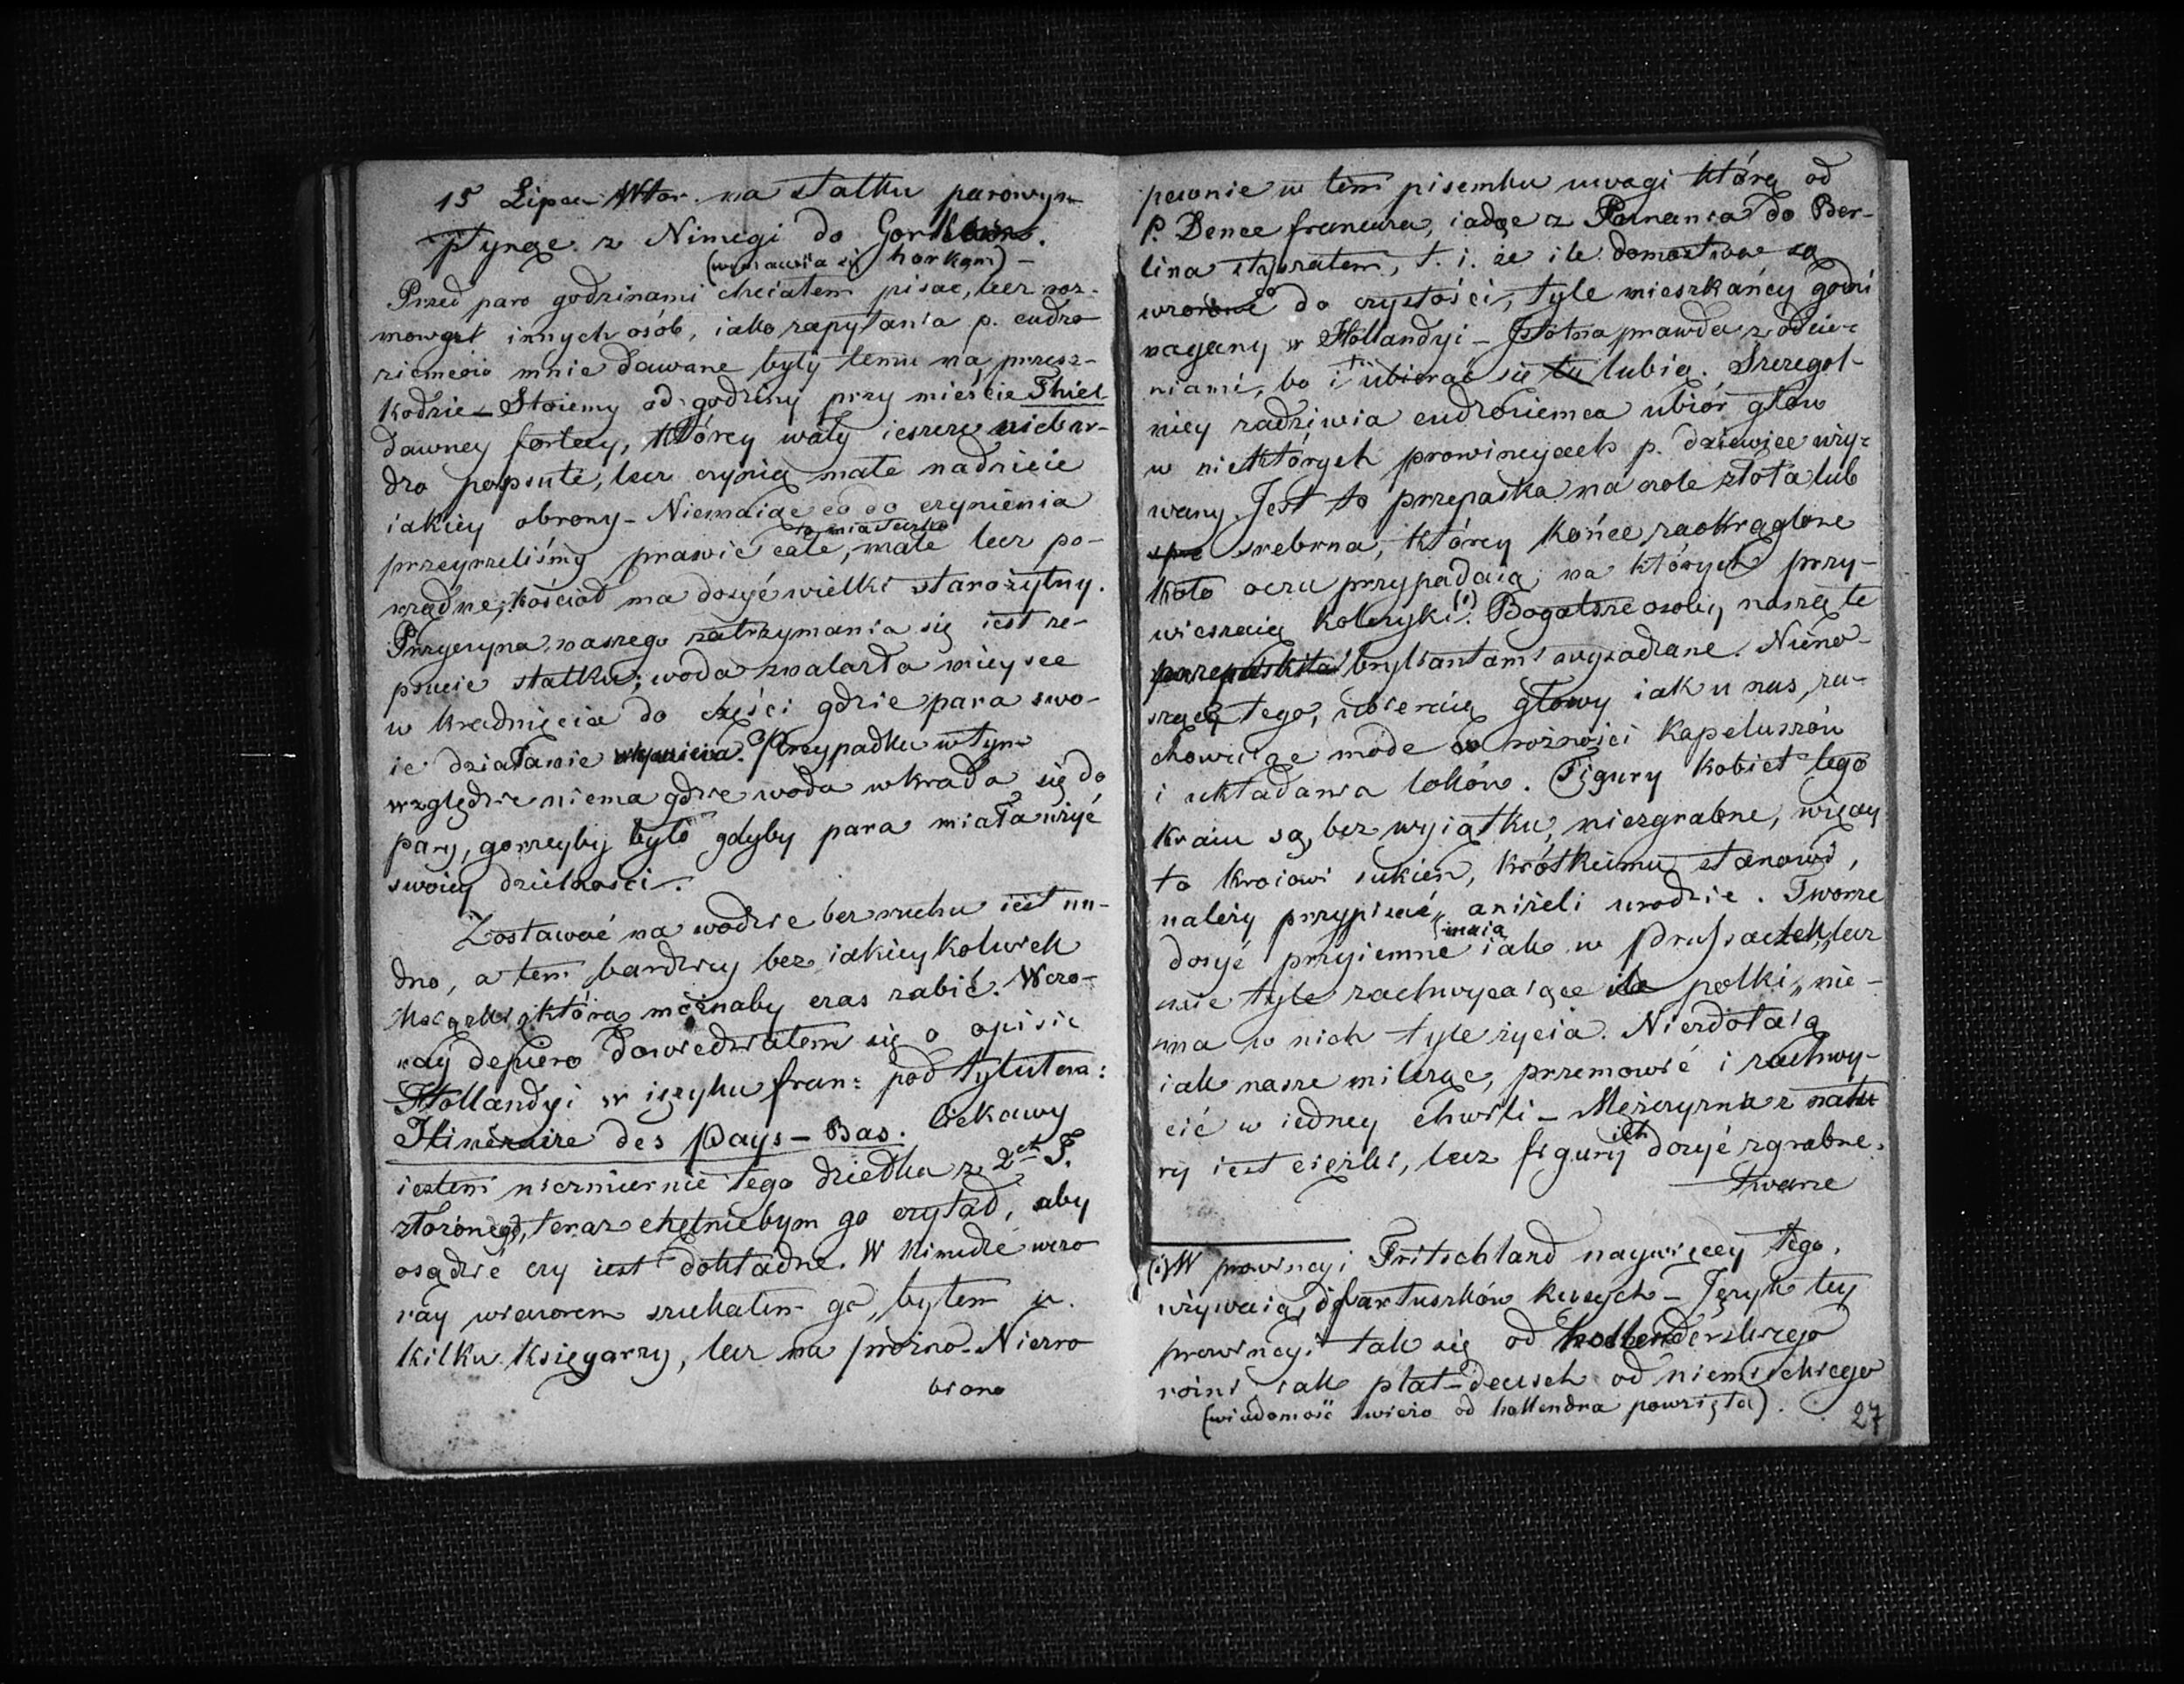 15 Lipca Wtor. na statku parowym
płynąc z Nimegi do Gork
(wymawia się horkąm) –
Przed paro godzinami chciałem pisać, lecz roz-
mowy innych osób, iako zapytania p. cudzo
ziemców mnie dawane były temu na przesz-
kodzie – Stoiemy od godziny przy mieście Thiel
dawney fortecy, którey wały ieszcze niebar-
dzo popsute, lecz czynią małe nadzieie
iakiey obrony – Niemaiąc co do czynienia
to miasteczko
przeyrzeliśmy prawie całe, małe lecz po-
rządne, kościoł ma dosyć wielki starożytny.
Przyczyna naszego zatrzymania się iest ze-
psucie statku; woda znalazła mieysce
w kradnięcia do części gdzie para swo-
ie działanie. Przypadku w tym
względzie niema gdzie woda wkrada się do
pary, gorzeyby było gdyby para miała użyć
swoiey dzielności.
Zostawać na wodzie bez ruchu iest nu-
dno, a tem bardziey bez iakieykolwiek
książki którą możnaby czas zabić. Wczo-
ray depiero dowiedziałem się o opisie
Hollandyi w ięzyku fran: pod tytułem:
Itinéraire des Pays – Bas. Ciekawy
iestem niezmiernie tego dziełka z 2ch T.
złożonego, teraz chętniebym go czytał, aby
osądzić czy iest dokładne. W Nimudze wczo
ray wieczorem szukałem go, byłem u
kilku księgarzy, lecz na prożno. Niezro
biono
pewnie w tem pisemku uwagi którą od
P. Dence francuza, iadąc z Poznania do Ber-
lina słyszałem, t. i. że ile domostwa są
co do czystości, tyle mieszkańcy godni
nagany w Hollandyi – Istotna prawda z odcie-
niami, bo i tu ubierać się tu lubią. Szczegol-
niey zadziwia cudzoziemca ubiór głow
w niektórych prowincyach p. dziewice uży-
wany. Jest to przepaska na czole złota lub
spe srebrna, którey końce zaokrąglone
koło oczu przypadaią, na których przy-
wieszaią kolczyki (1). Bogatsze osoby noszą te
przepaski bryllantami wysadzane. Nieno-
szący tego, ubieraią głowy iak u nas, za-
chowuiąc mode w rożności kapeluszów
i układania loków. Figury kobiet tego
kraiu są, bez wyiątku, niezgrabne, więcey
to kroiowi sukień, krótkiemu stanowi,
należy przypisać, aniżeli urodzie. Tworze
maią
dosyć przyiemne iak w Prussaczek, lecz
nie tyle zachwycaiące ile polki, nie-
ma w nich tyle życia. Niezdołaią
iak nasze milcząc, przemowić i zachwy-
cić w iedney chwili – Mężczyzna z natu
ry iest ciężki, lecz figury ich dosyć zgrabne.
twarze
(1) W prowincyi Fritschland naywięcey tego,
używaią, i fartuszków kusych – Język tey
prowincyi tak się od hollenderskiego
rożni iak plat-deusch od niemieckiego
(wiadomość świeżo od hollendra powzięta).
27